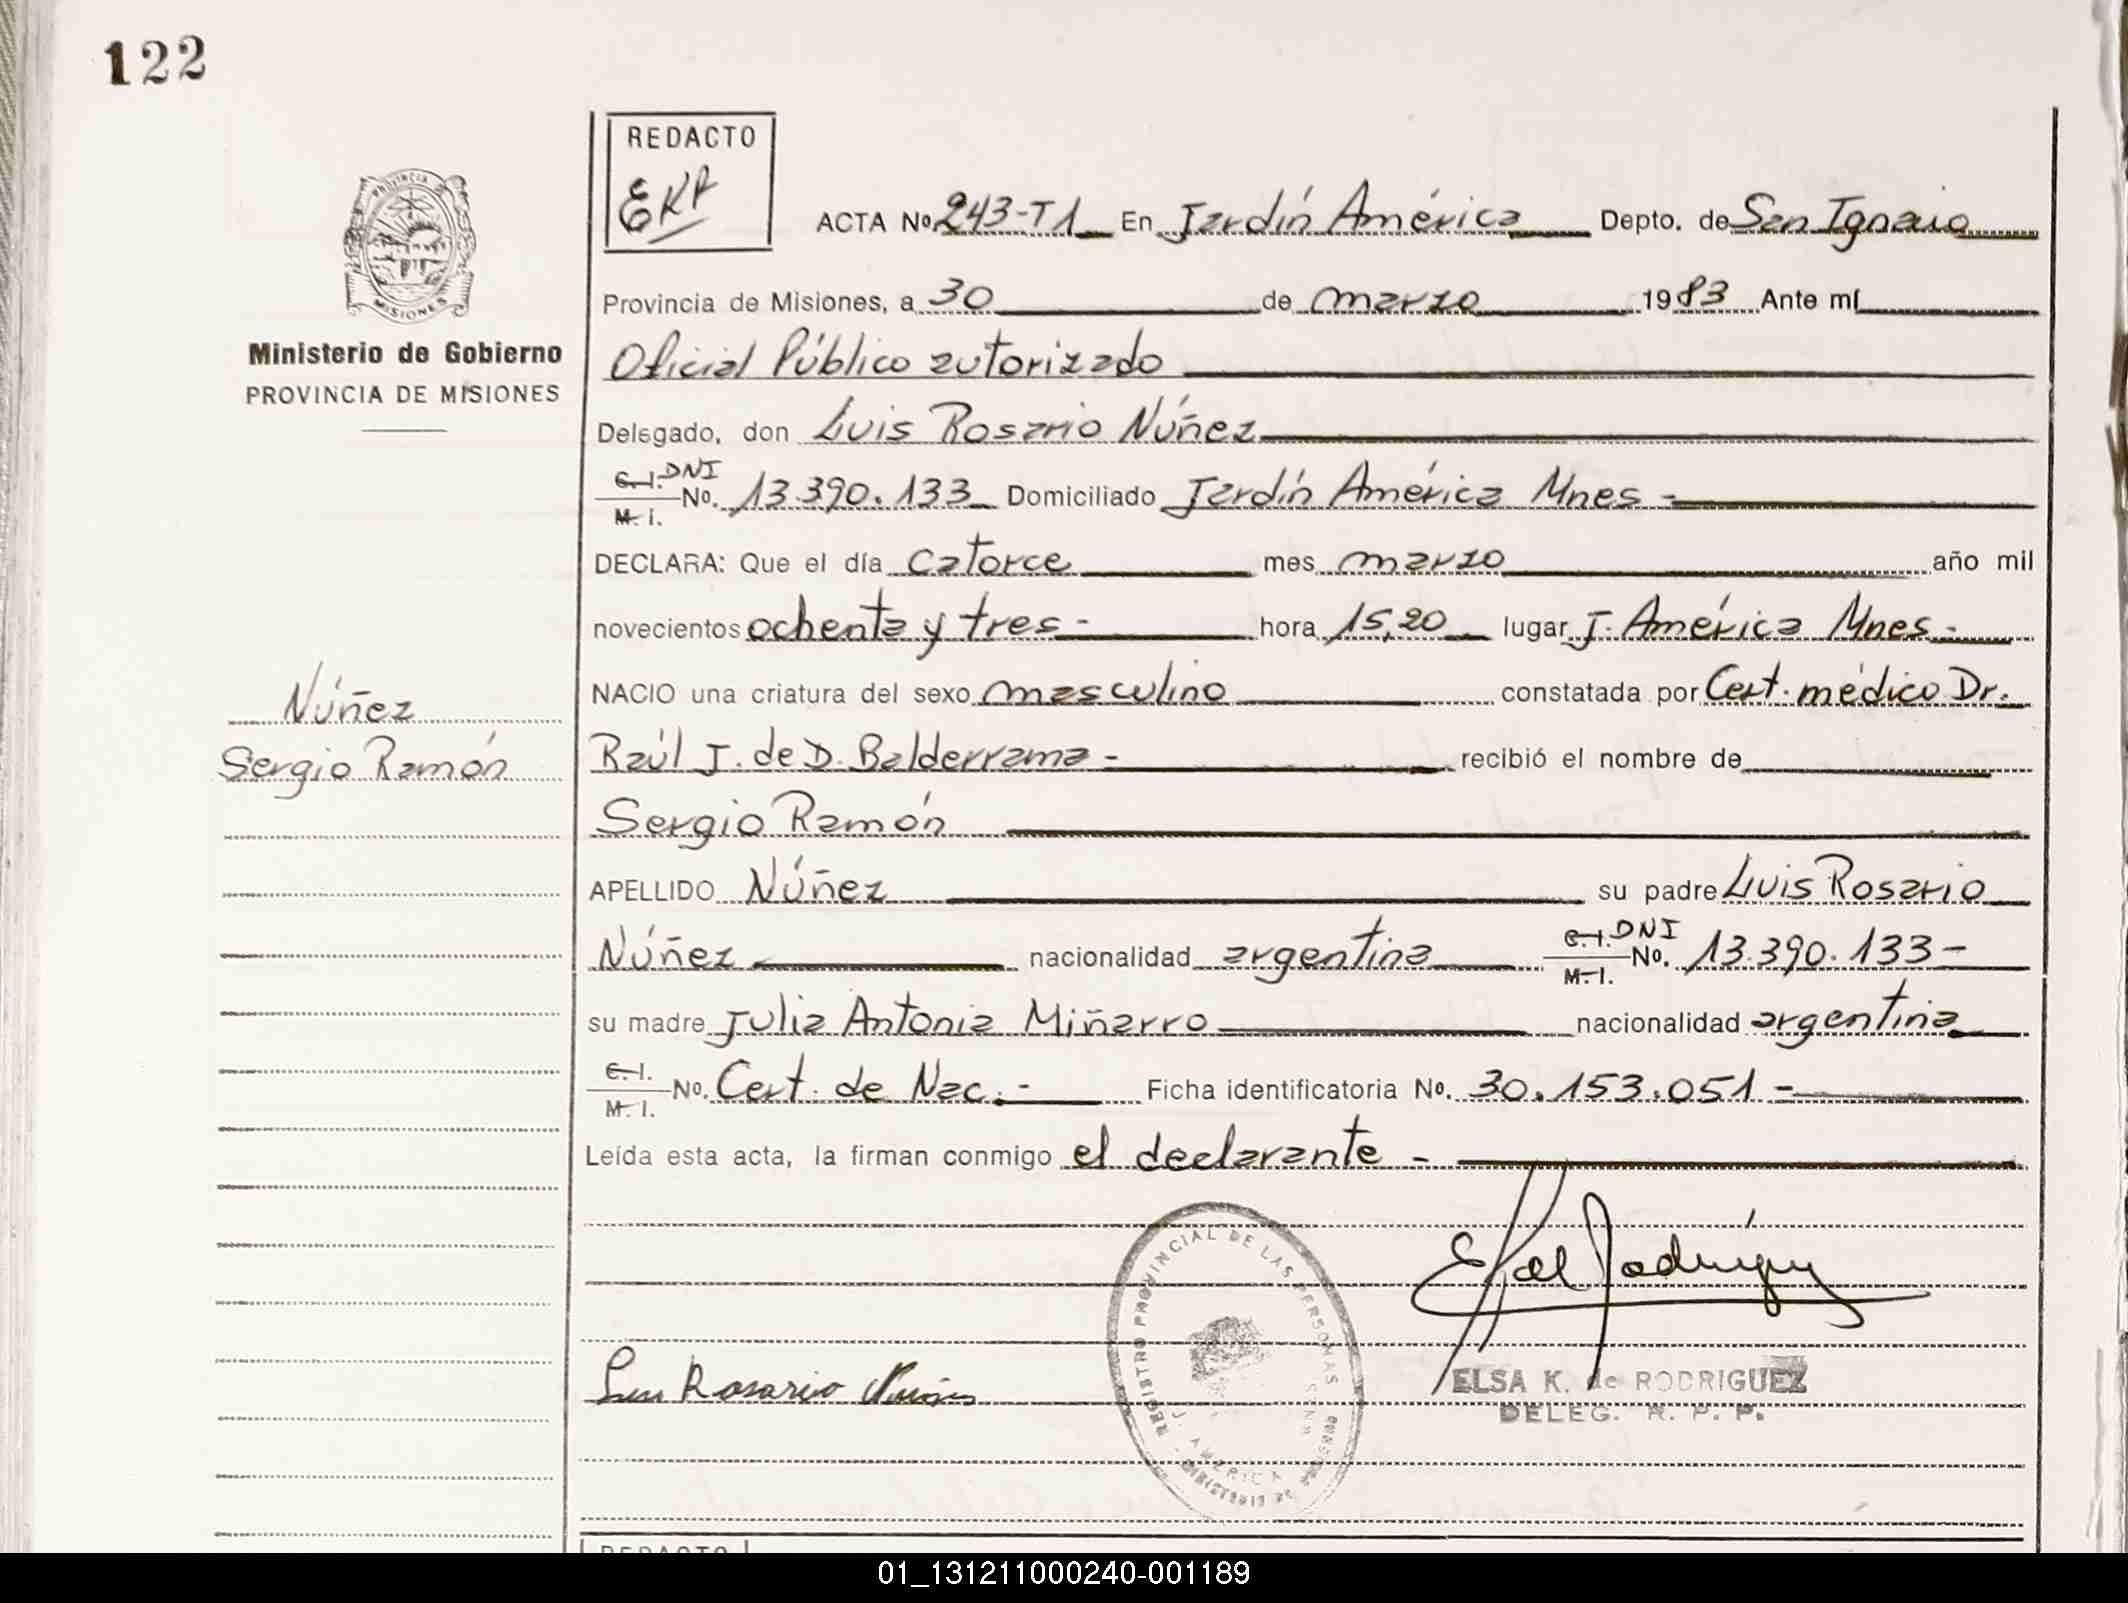 122
REDACTO
EKR
PROVINCIA
MISIONES
Ministerio de Gobierno
PROVINCIA DE MISIONES
Núñez
Sergio Ramón
ACTA No. 243-T1 En Jardín América Depto. de San Ignacio
Provincia de Misiones, a 30 de marzo 1983 Ante mí
Oficial Público autorizado
Delegado, don Luis Rosario Núñez
C. I. DNI
M. I. No. 13.390.133 Domiciliado Jardín América Mnes -
DECLARA: Que el día catorce mes marzo año mil
novecientos ochenta y tres - hora 15,20 lugar J. América Mnes -
NACIO una criatura del sexo masculino constatada por Cert. médico Dr.
Raúl J. de D. Balderrama - recibió el nombre de
Sergio Ramón
APELLIDO Núñez su padre Luis Rosario
Núñez nacionalidad argentina C. I. DNI M. I. No. 13.390.133 -
su madre Julia Antonia Miñarro nacionalidad argentina
C. I. M. I. No. Cert. de Nac. - Ficha identificatoria No. 30.153.051 -
Leída esta acta, la firman conmigo el declarante -
Luis Rosario Núñez
REGISTRO PROVINCIAL DE LAS PERSONAS
J. AMERICA
MINISTERIO DE
ELSA K. de RODRIGUEZ
DELEG. R. P. P.
REDACTO
01_131211000240-001189